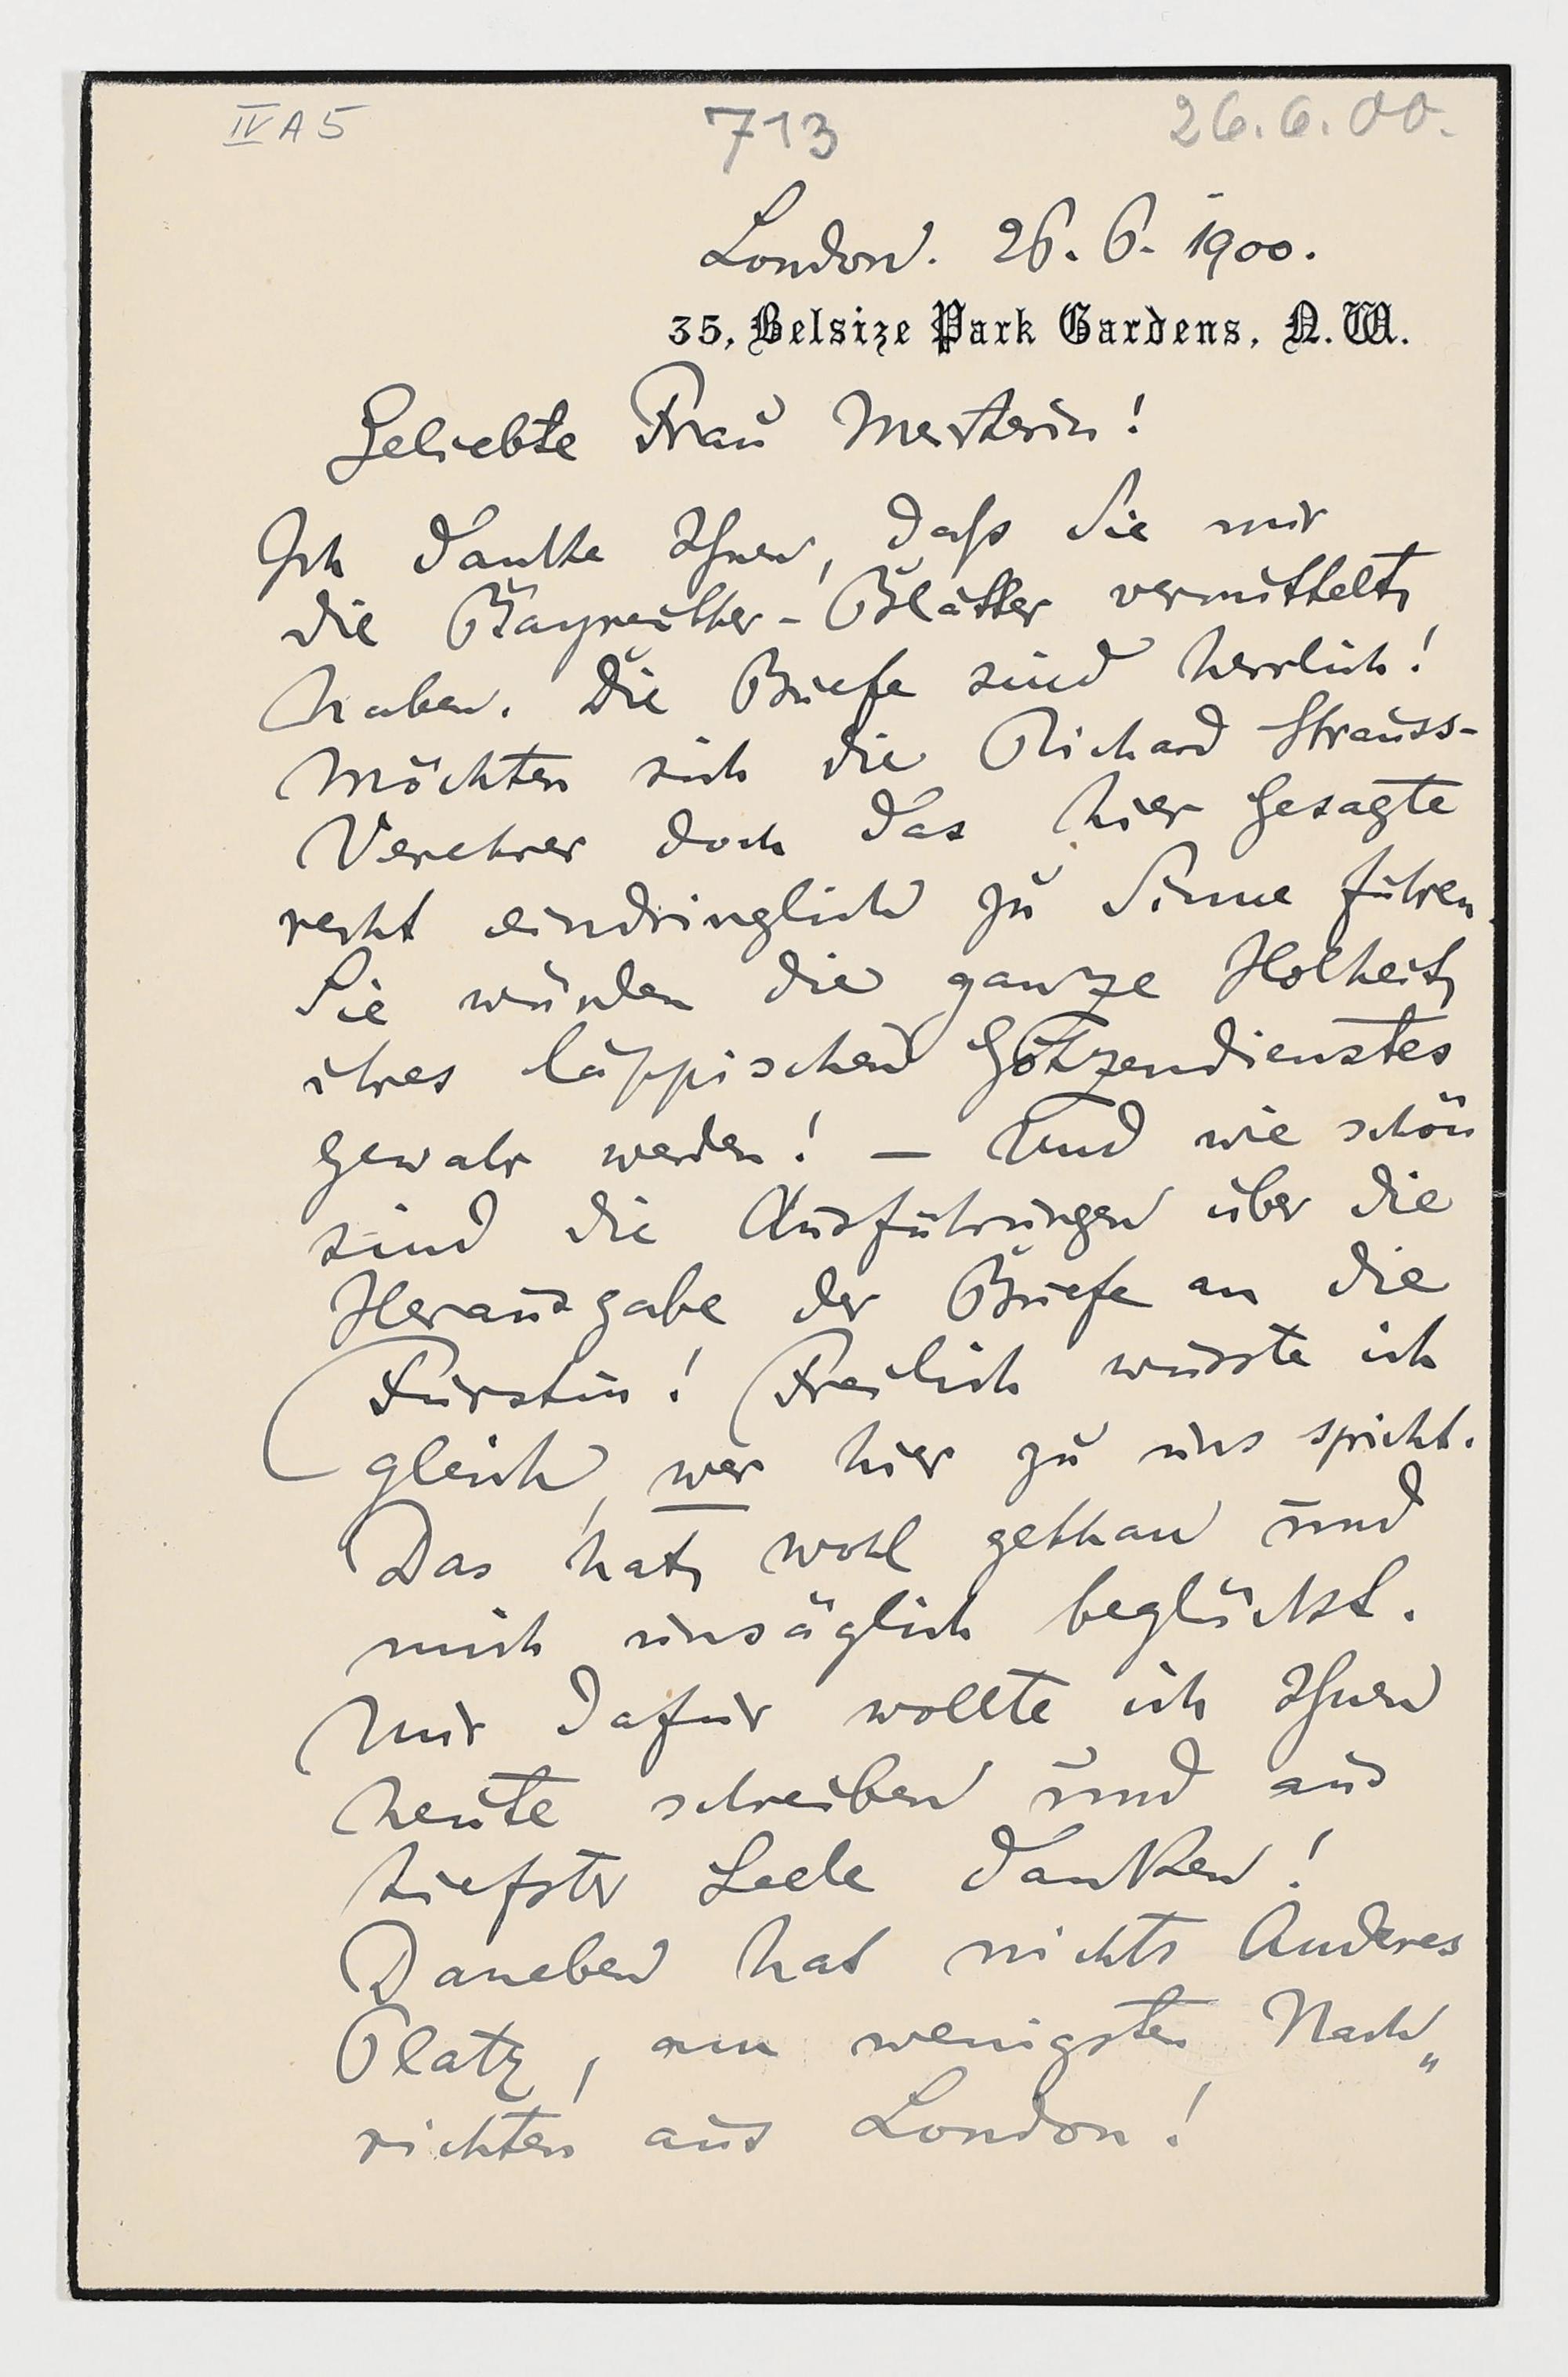 IV A 5 713 26.6.00.
London. 26. 6. 1900.
35, Belsize Park Gardens, N.W.
Geliebte Frau Meisterin!
Ich danke Ihnen, daß Sie mir
die Bayreuther-Blätter vermittelt
haben. Die Briefe sind herrlich!
Möchten sich die Richard Strauss-
Verehrer doch das hier Gesagte
recht eindringlich zu Sinne führen.
Sie würden die ganze Hohlheit
ihres läppischen Götzendienstes
gewahr werden! — Und wie schön
sind die Ausführungen über die
Herausgabe der Briefe an die
Fürstin! Freilich wusste ich
gleich, wer hier zu uns spricht.
Das hat wohl gethan und
mich unsäglich beglückt.
Nur dafür wollte ich Ihnen
heute schreiben und aus
tiefster Seele danken!
Daneben hat nichts Anderes
Platz, am wenigsten Nach„
richten aus London!